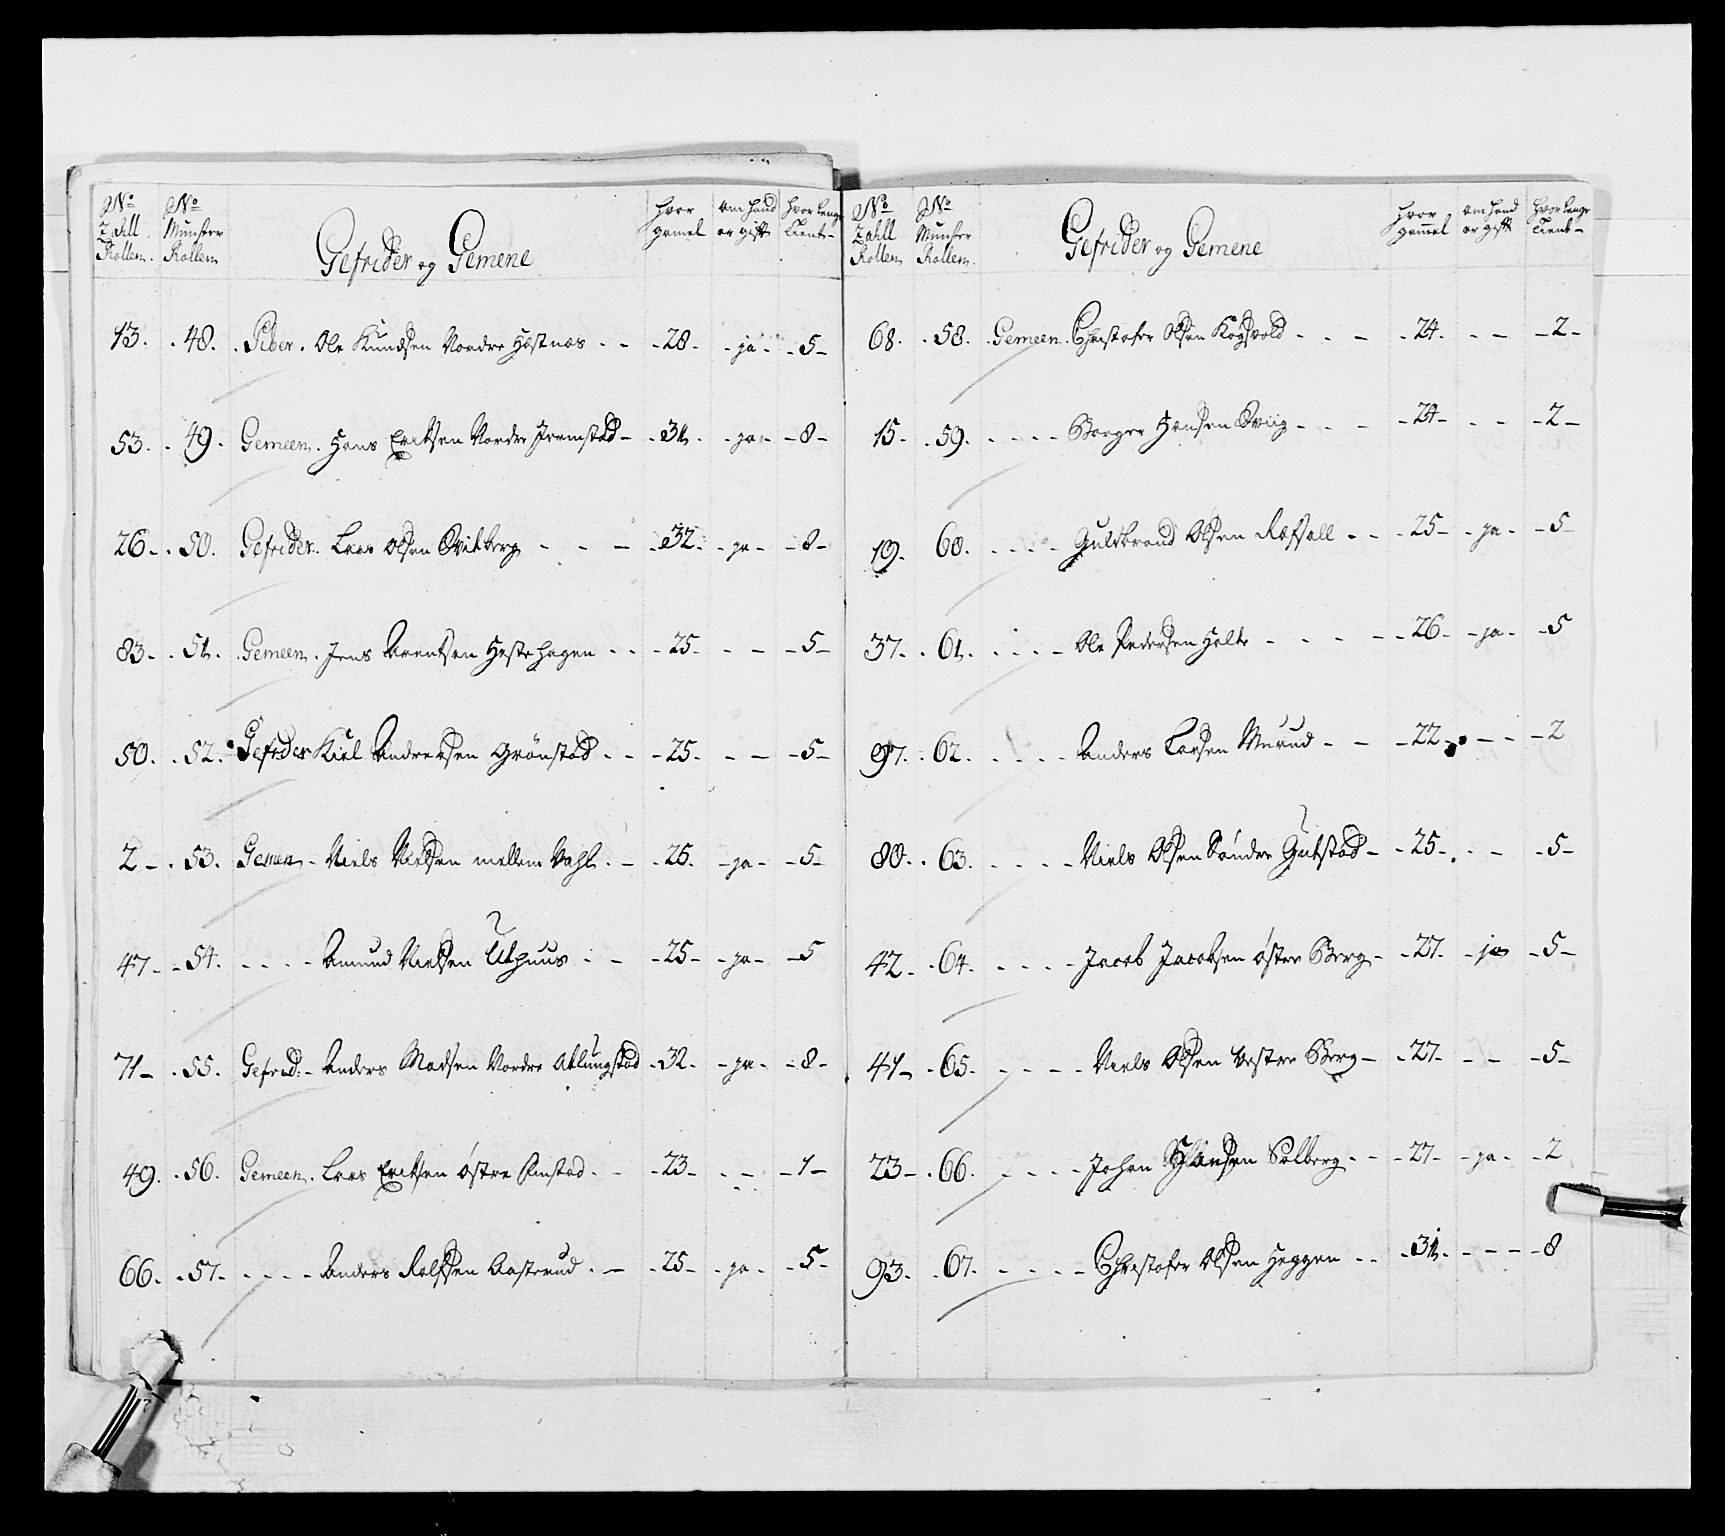 No Zahll Rollem. No Munster Rollem Gefrider og Gemene hvor gamel om hand er gift hvor lenge tient
13. 48. Piber. Ole Knudsen Nordre Hæstnæs 28. ja 5
53. 49. Gemeen. Hans Ericksen Nordre Jremstad 31. ja 8
26. 50. Gefrider. Lars Olsen Qvitberg 32. ja 8
83. 51. Gemeen. Jens Arentsen Hestehagen 25. 5
50. 52. Gefrider Kiel Andreesen Grönstad 25. 5
2 53. Gemen Niels Nielsen mellem Vahl 25. ja 5
47 54. Amund Nielsen Uthuus 25 ja 5
71 55. Gefrid: Anders Madsen Nordre Atlungstad 32. ja 8
49. 56. Gemeen. Lars Ericksen Østre Rinstad 23 1
66. 57. Anders Rolfsen Aasterud 25 ja 5
No Zahll Rollem No Munster Rollem. Gefrider og Gemene hvor gammel om hand er gift hvor lenge tient
68. 58. Gemeen. Christofer Olsen Kogsvold 24. 2
15. 59. Borger Hansen Qviig 24 2
19. 60. Guldbrand Olsen Ræfsall 25 ja 5
37. 61. Ole Pedersen Holte 26. ja 5
97. 62. Anders Larsen Murud 22 2
80. 63. Niels Olsen Söndre Gutstad 25 5
42 64. Jacob Jacobsen Østre Berg 27. ja 5
41 65. Niels Olsen Vestre Berg 27 5
23 66. Johan Hansen Solberg 27 ja 2
93. 67. Christofer Olsen Heggen 31. 8